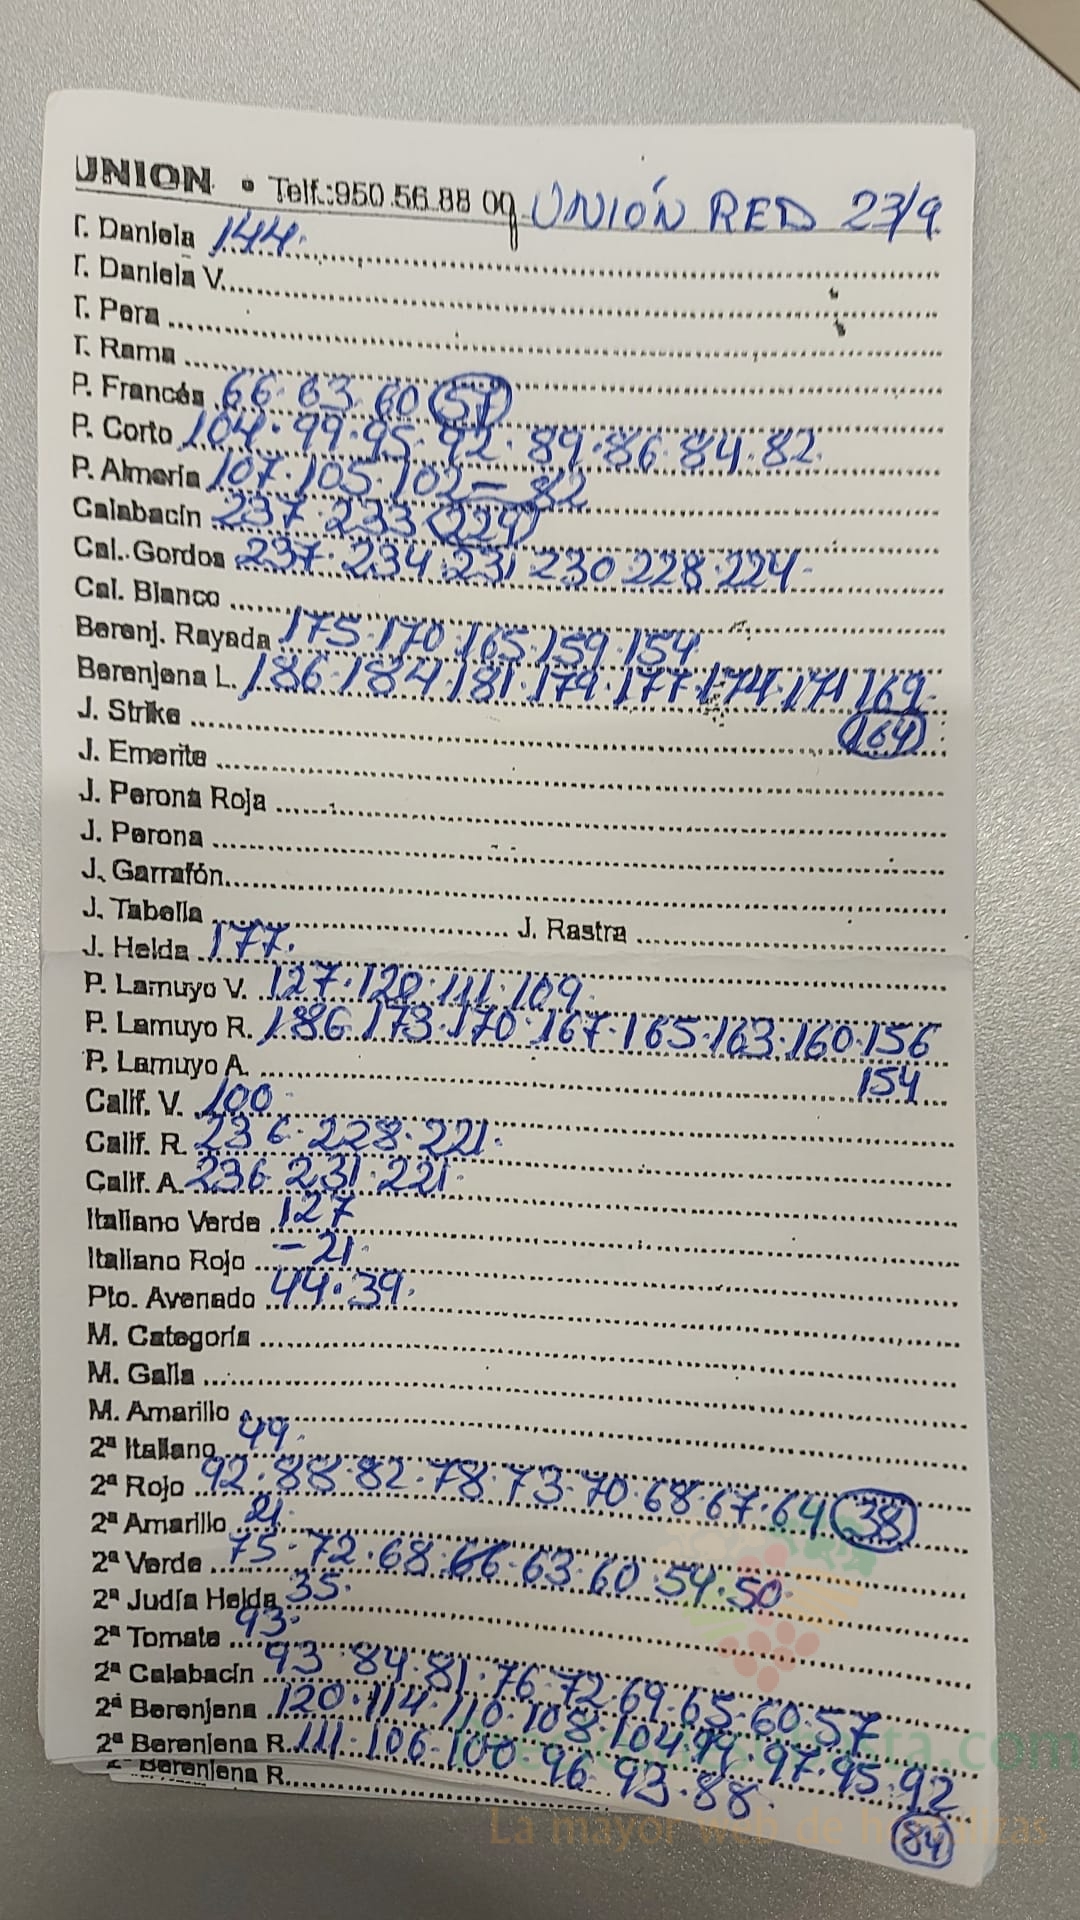 UNION • Telf.:950.56.88 09 UNIÓN RED 23/9
T. Daniela 144.
T. Daniela V.
T. Pera
T. Rama
P. Francés 66. 63. 60 (57)
P. Corto 104. 99. 95. 92. 89. 86. 84. 82.
P. Almería 107. 105. 102 - 82
Calabacín 237. 233 (229)
Cal. Gordos 237. 234. 231 230 228. 224.
Cal. Blanco
Berenj. Rayada 175. 170. 165. 159. 154
Berenjena L. 186. 184. 181. 179. 177. 174. 171 169.
(164)
J. Strike
J. Emerite
J. Perona Roja
J. Perona
J. Garrafón
J. Tabella J. Rastra
J. Helda 177.
P. Lamuyo V. 127. 120. 111. 109.
P. Lamuyo R. 186 173. 170. 167. 165. 163. 160. 156
154
P. Lamuyo A.
Calif. V. 100
Calif. R. 236. 228. 221.
Calif. A. 236 231. 221.
Italiano Verde 127
Italiano Rojo - 21.
Pto. Avenado 44. 39.
M. Categoría
M. Galia
M. Amarillo
2ª Italiano 49.
2ª Rojo 92. 88. 82. 78. 73. 70. 68. 67. 64 (38)
2ª Amarillo 21.
2ª Verde 75. 72. 68. 66. 63. 60. 54. 50.
2ª Judía Helda 35.
2ª Tomate 93.
2ª Calabacín 93. 84. 81. 76. 72. 69. 65. 60. 57
2ª Berenjena 120. 114. 110. 108. 104. 99. 97. 95. 92
2ª Berenjena R. 111. 106. 100 96. 93. 88.
(84)
2ª Berenjena R.
La mayor web de hortalizas